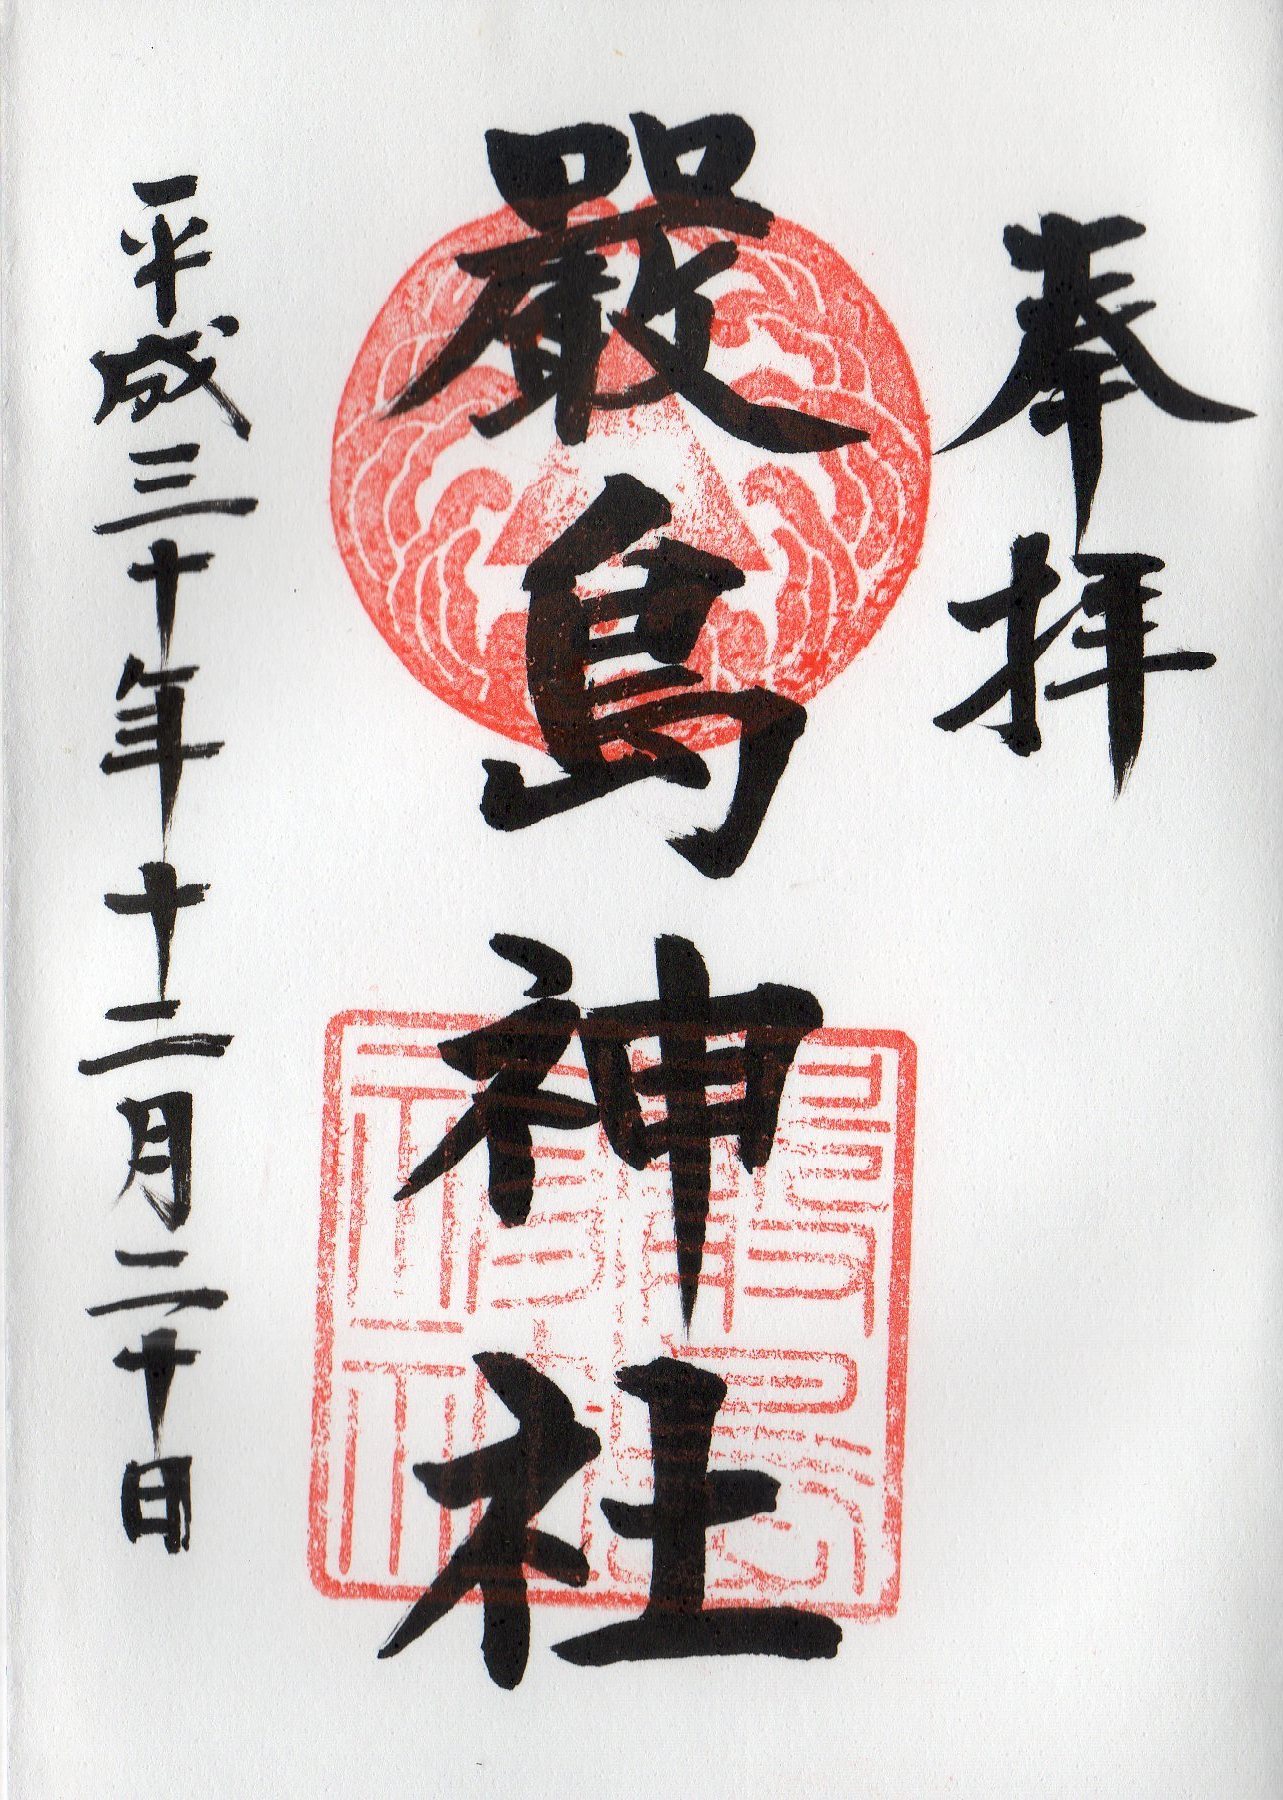 奉拝
嚴島神社
平成三十年十二月二十日